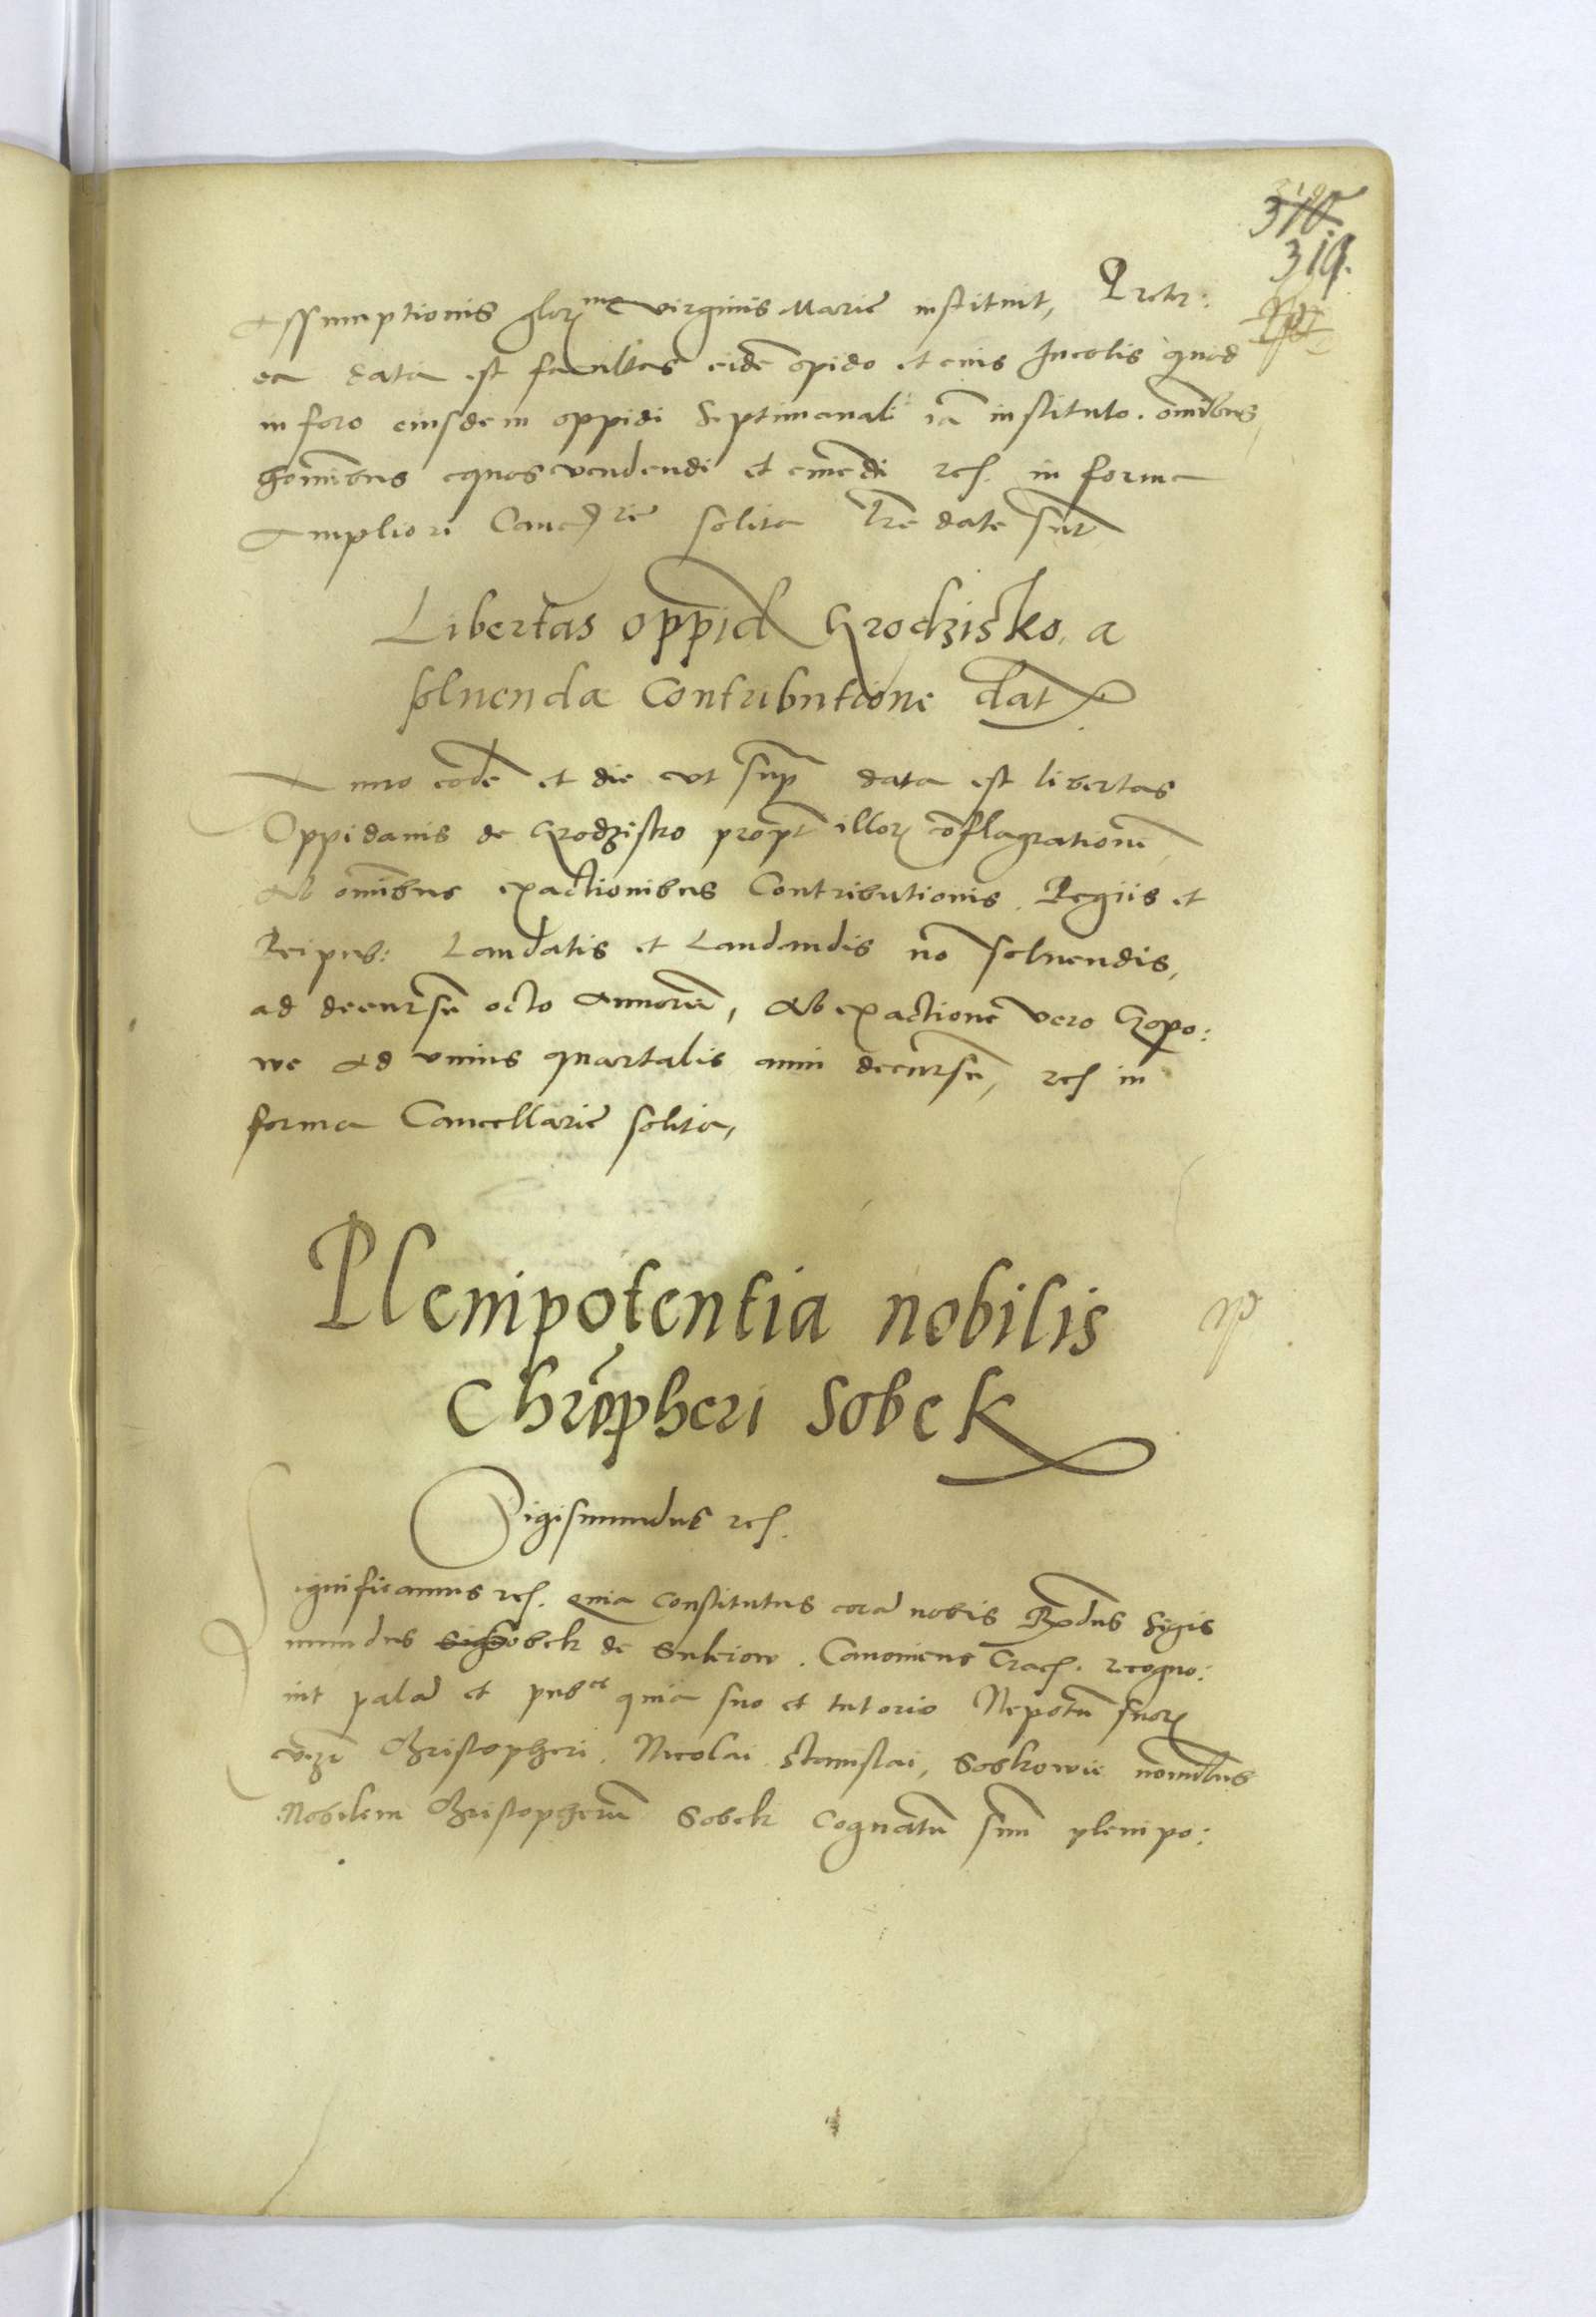 319
310
319.
Assumptionis glor^me virginis Marie instituit, Preter:
ea data est facultas eidē opido et eius Incolis quod
in foro eiusdem oppidi Septimanali iā instituto. omībus
homībus equos vendendi et emēdi etc. in forma
Ampliori Canc^rie solita lrē date sūt
Libertas oppid Grodzisko, a
soluenda contributione dat
Anno eodē et die vt sup data est libertas
Oppidanis de Grodzisko propt illor cōflagrationē
Ab omībus exactionibus Contributionis Regiis et
Reipub: Laudatis et Laudandis nō soluendis,
ad decursū octo Annorū, Ab exactione vero Czopo:
we Ad vnius quartalis anni decursū, etc in
forma Cancellarie solita,
Plenipotentia nobilis
Chrōpheri Sobek
Sigismundus etc.
Significamus etc. quia constitutus corā nobis Rndus Sigis
mundus Sobek de Suleiow. Canonicus Crac. recogno:
uit palā et pub^ce quia suo et tutorio Nepotū suor
Christopheri. Nicolai Stanislai, Soskowie nomībus
Nobilem Christopherū Sobek Cognatū suū plenipo: